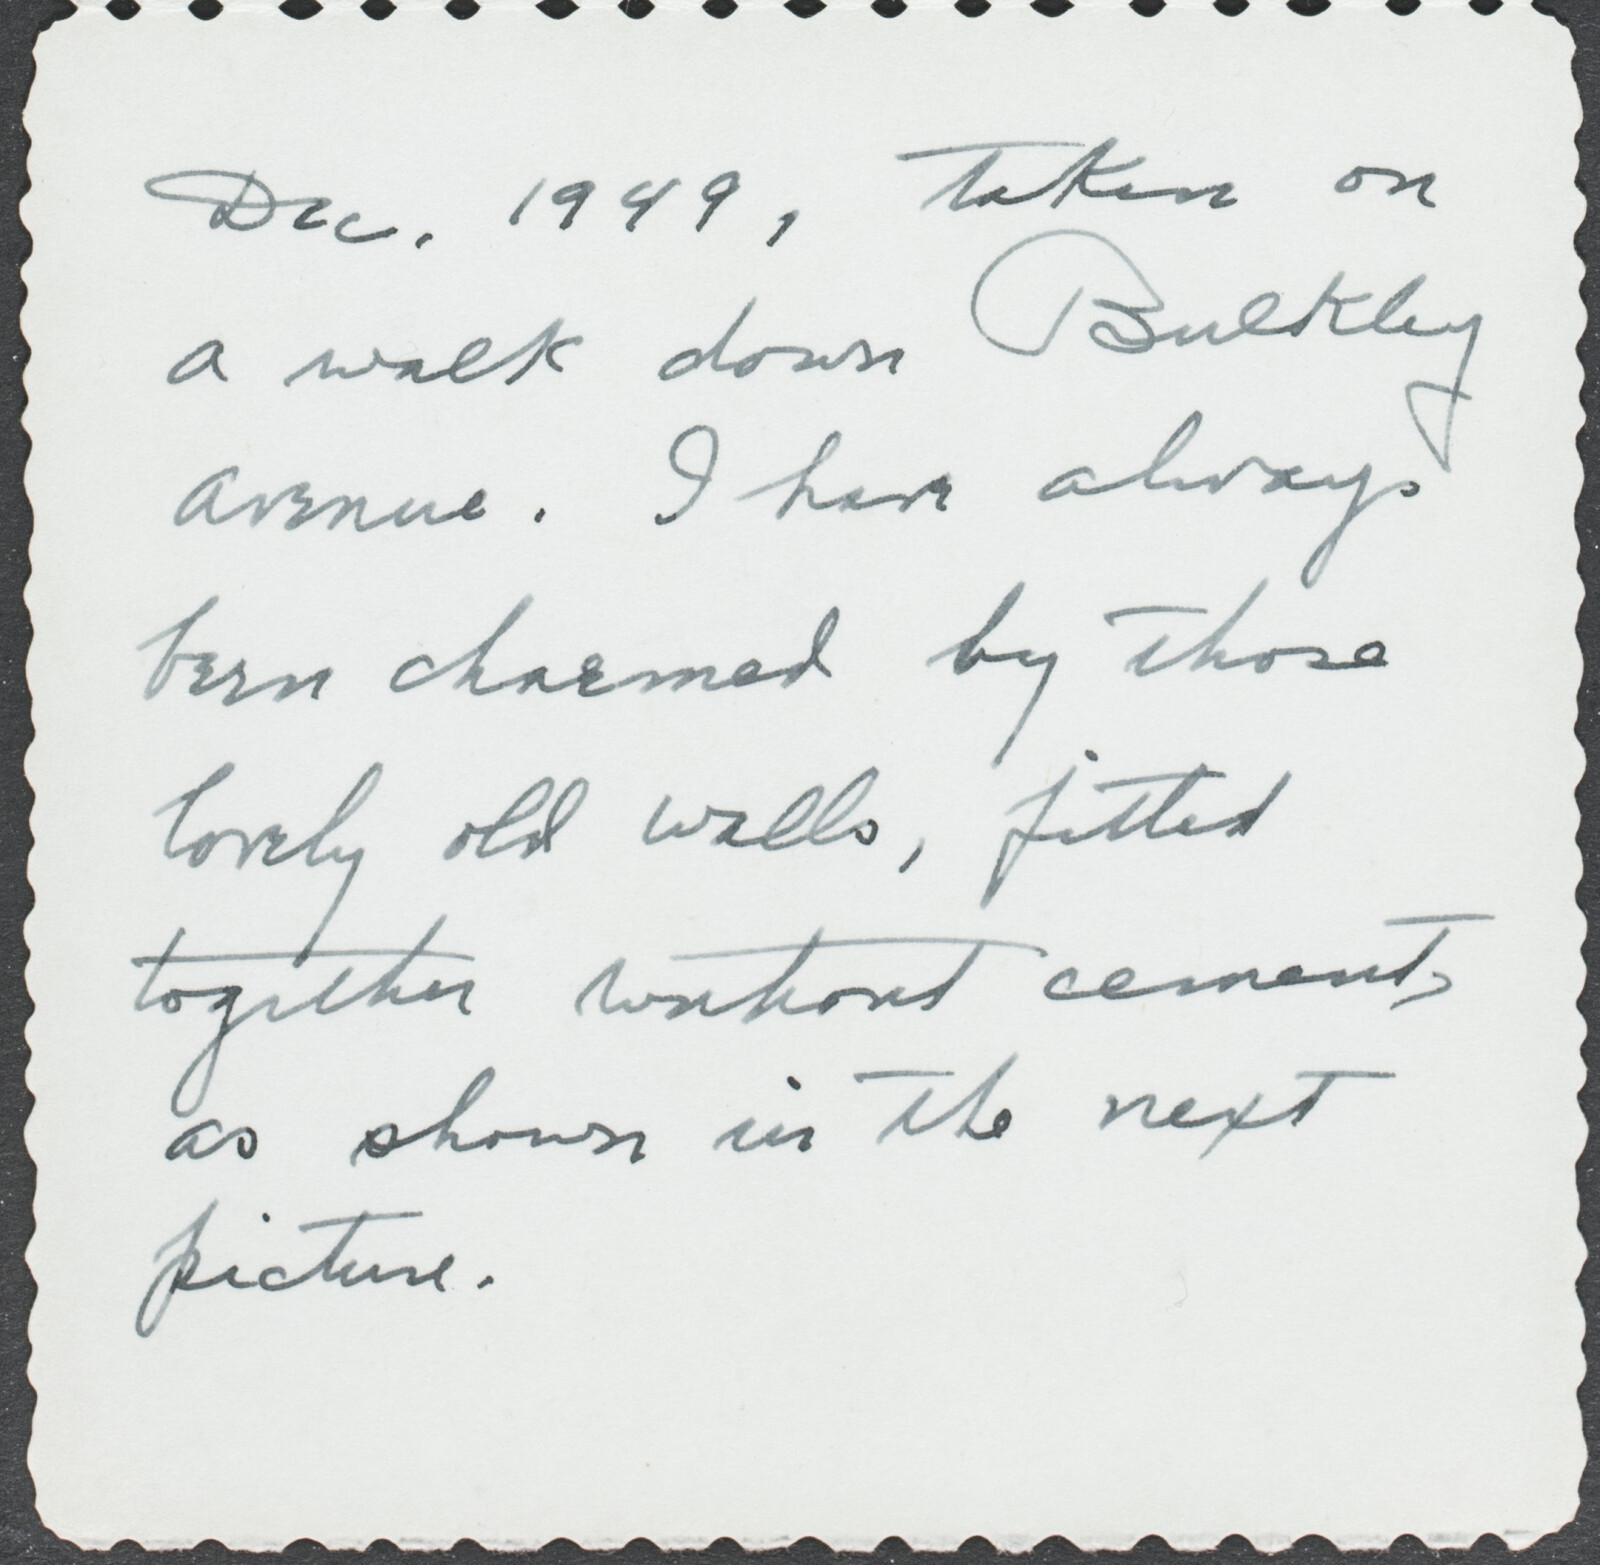 Dec. 1949, taken on
a walk down Bulkley
avenue. I have always
been charmed by those
lovely old walls, fitted
together without cement,
as shown in the next
picture.